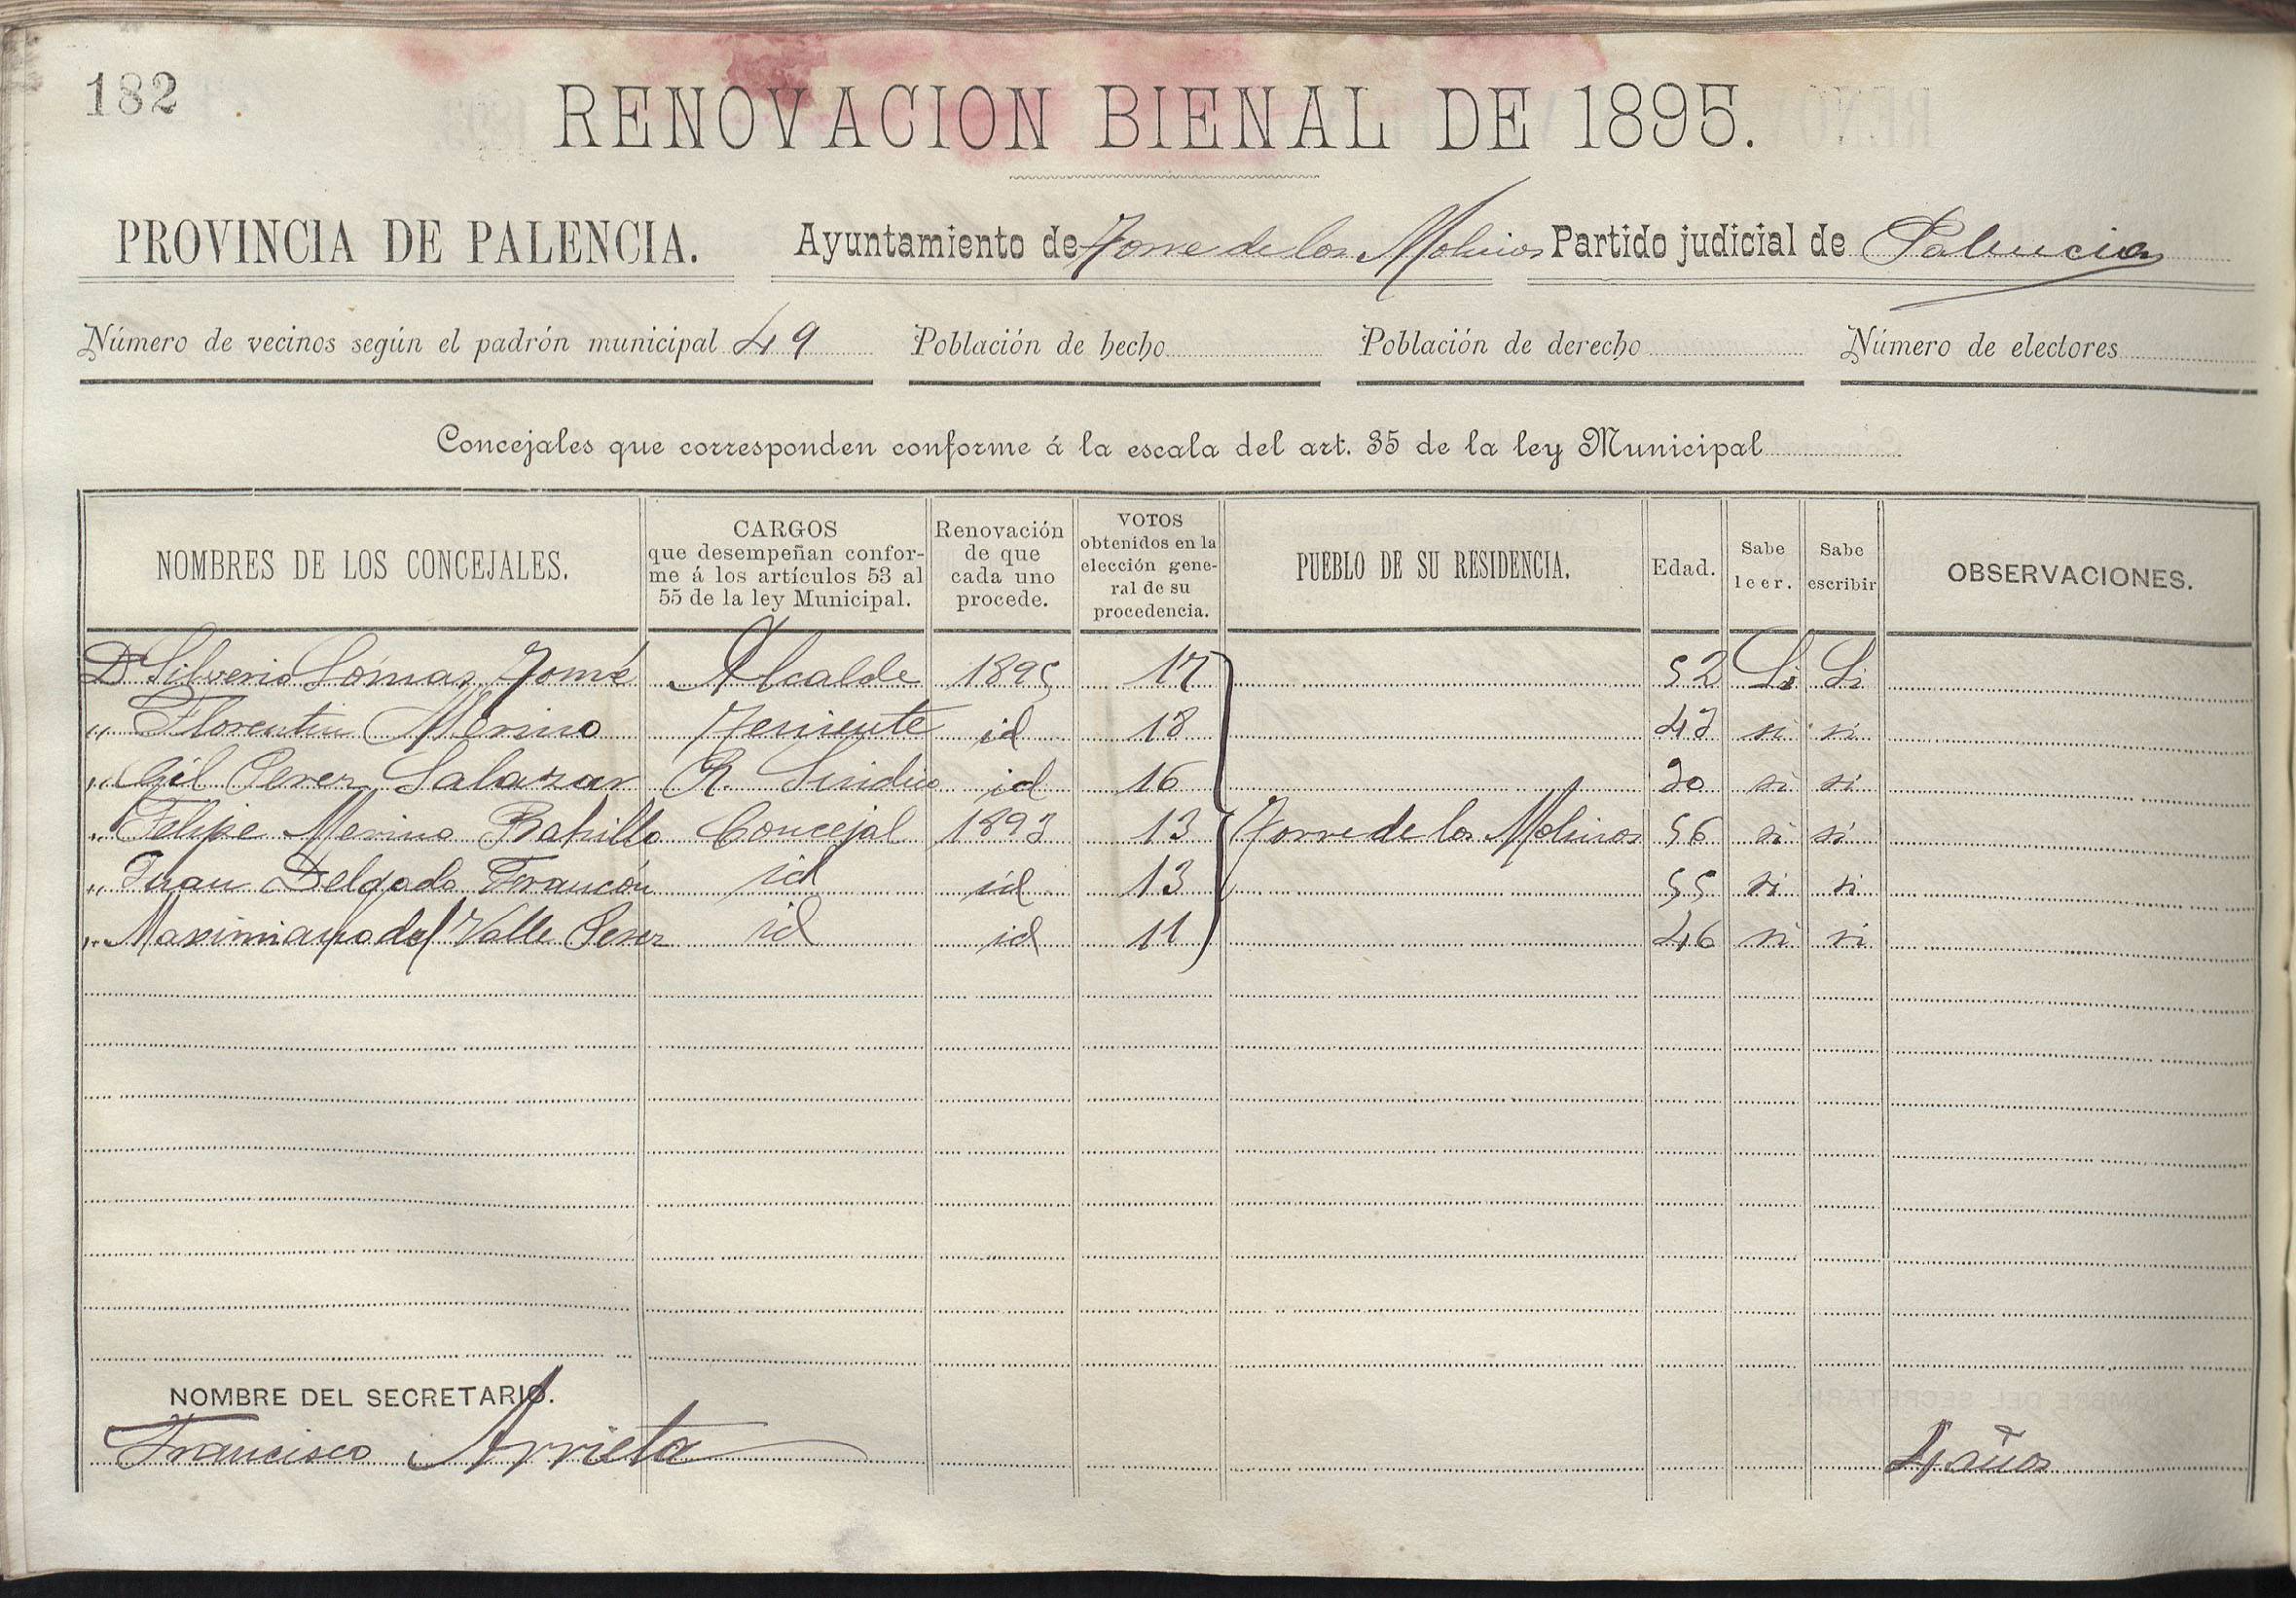 182
RENOVACION BIENAL DE 1895.
PROVINCIA DE PALENCIA. Ayuntamiento de Torre de los Molinos Partido judicial de Palencia
Número de vecinos según el padrón municipal 49 Población de hecho Población de derecho Número de electores
Concejales que corresponden conforme á la escala del art. 35 de la ley Municipal
NOMBRES DE LOS CONCEJALES. CARGOS que desempeñan confor-me á los artículos 53 al 55 de la ley Municipal. Renovación de que cada uno procede. VOTOS obtenidos en la elección gene-ral de su procedencia. PUEBLO DE SU RESIDENCIA. Edad. Sabe leer. Sabe escribir OBSERVACIONES.
Dn Silverio Lomas Tomé Alcalde 1895 17 52 Si Si
" Florentin Merino Teniente id 18 43 si si
" Gil Perez Salazar R. Sindico id 16 30 si si
" Felipe Merino Bahillo Concejal 1893 13 Torre de los Molinos 56 si si
" Juan Delgado Francón id id 13 55 si si
" Maximiano del Valle Perez id id 11 46 si si
NOMBRE DEL SECRETARIO.
Francisco Arrieta 4 años